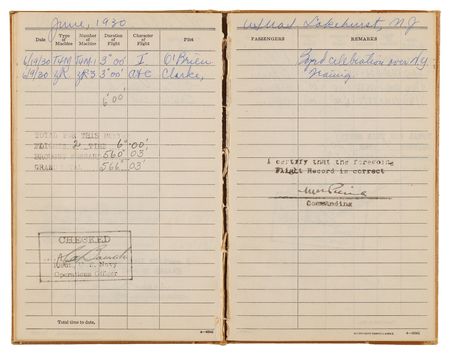 June, 1930
Date
Type of Machine
Number of Machine
Duration of Flight
Character of Flight
Pilot
6/19/30 3°00' I O'Brien
6/9/30 3°00' Clarke,
6°00'
TOTAL FOR THIS
FLIGHTS 2 TIME 6°00'
BROUGHT FORWARD 560 03'
GRAND TOTAL 566 03'
CHECKED
Navy
Operations Officer
Total time to date,
Lakehurst, NJ
PASSENGERS
REMARKS
celebration over NY
I certify that the foregoing
Flight Record is correct
Commanding